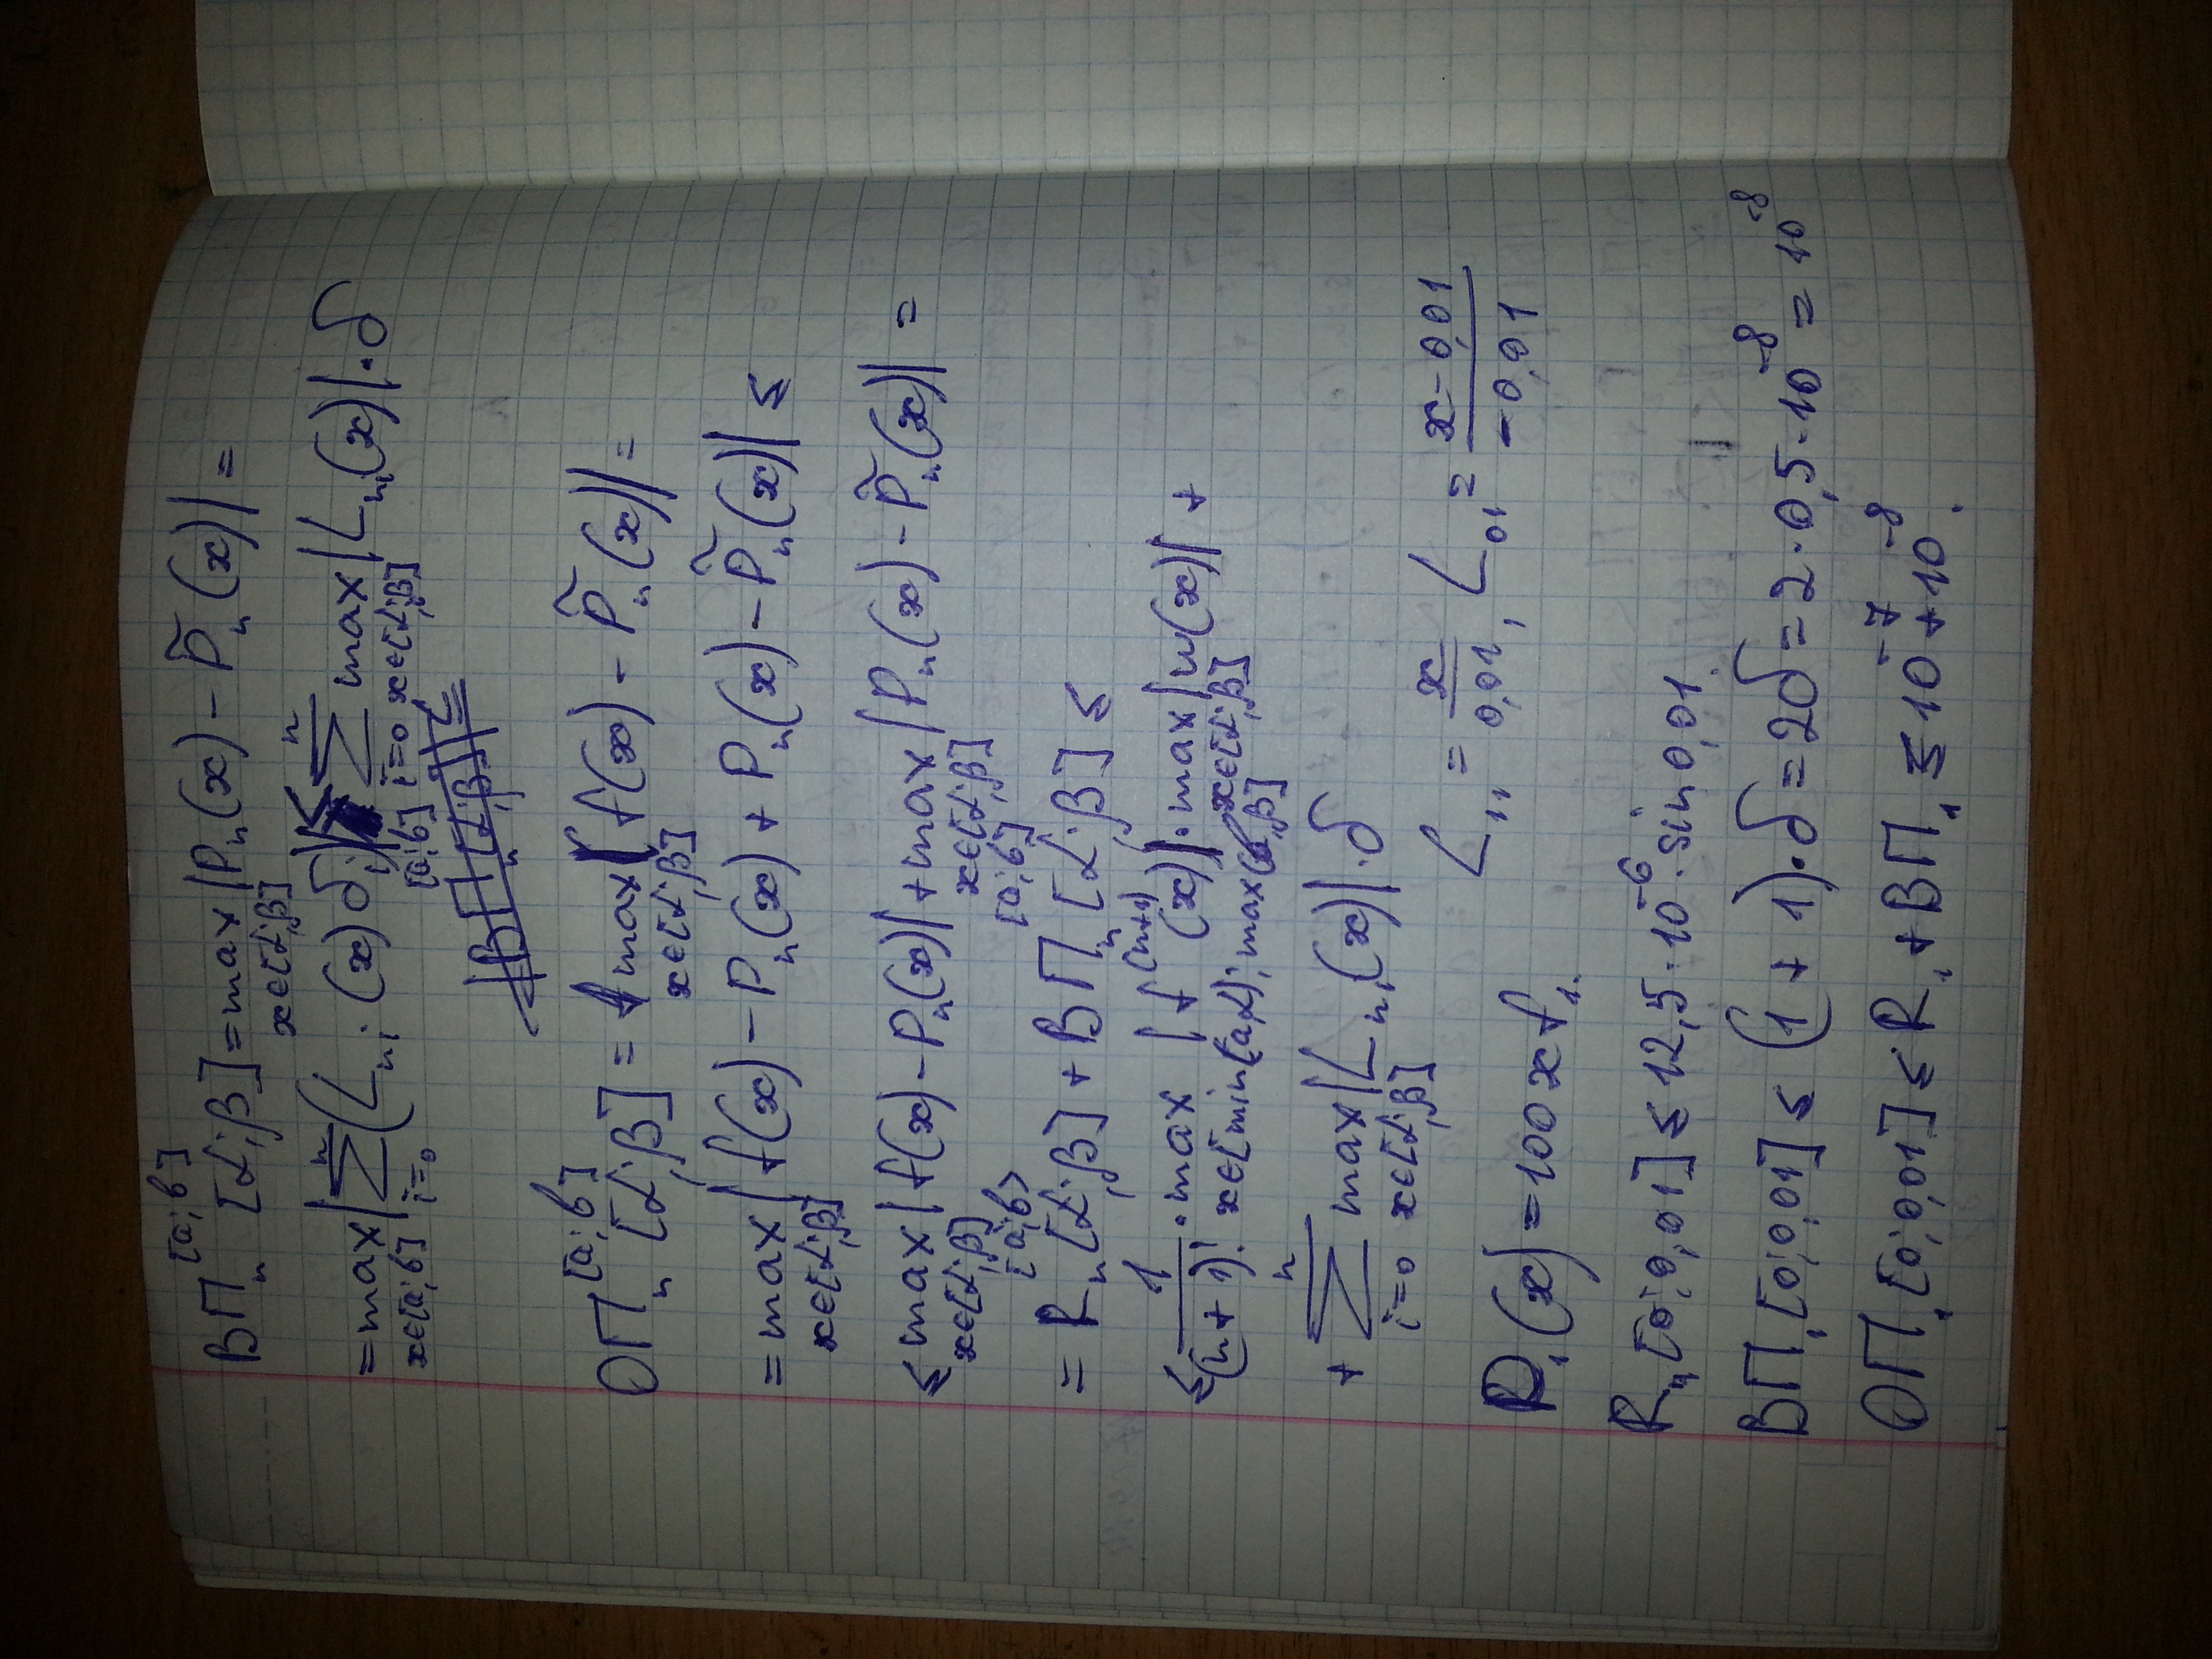 ВП_n^{[a;b]} [α;β] = max_{x∈[α;β]} |P_n(x) − P̃_n(x)| =
= max_{x∈[a;b]} |∑_{i=0}^{n} (L_{n i}(x) δ_i)| ≤ ∑_{i=0}^{n} max_{x∈[α;β]} |L_{n i}(x)| · δ
ОП_n^{[a;b]} [α;β] = max_{x∈[α;β]} |f(x) − P̃_n(x)| =
= max_{x∈[α;β]} |f(x) − P_n(x) + P_n(x) − P̃_n(x)| ≤
≤ max_{x∈[α;β]} |f(x) − P_n(x)| + max_{x∈[α;β]} |P_n(x) − P̃_n(x)| =
= R_n^{[a;b>} [α;β] + ВП_n^{[a;b]} [α;β] ≤
≤ 1/(n+1)! · max_{x∈[min(a,α); max(b,β]} |f^{(n+1)}(x)| · max_{x∈[α;β]} |w(x)| +
+ ∑_{i=0}^{n} max_{x∈[α;β]} |L_{n i}(x)| · δ
L_{11} = x/0,01, L_{01} = (x − 0,01)/(−0,01)
P_1(x) = 100x f_1.
R_1[0;0,01] ≤ 12,5·10^{−6}·sin 0,01.
ВП_1[0;0,01] ≤ (1 + 1)·δ = 2δ = 2·0,5·10^{−8} = 10^{−8}
ОП_1[0;0,01] ≤ R_1 + ВП_1 ≤ 10^{−7} + 10^{−8}.